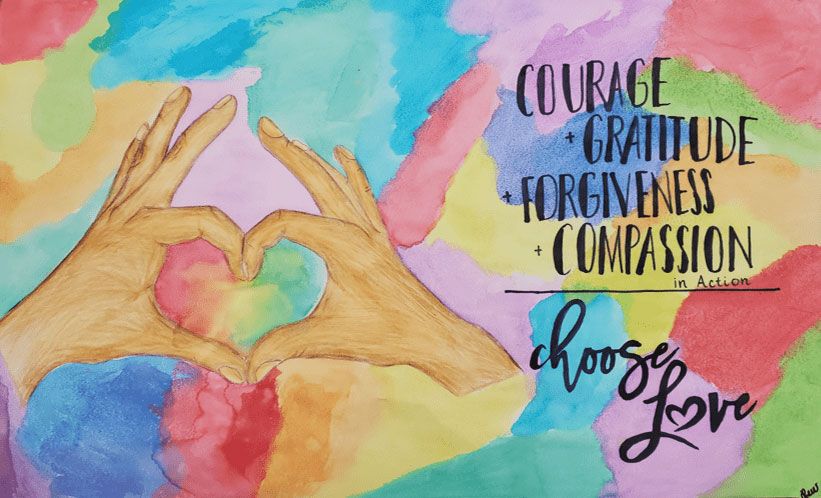 COURAGE
+ GRATITUDE
+ FORGIVENESS
+ COMPASSION
in Action
choose
Love